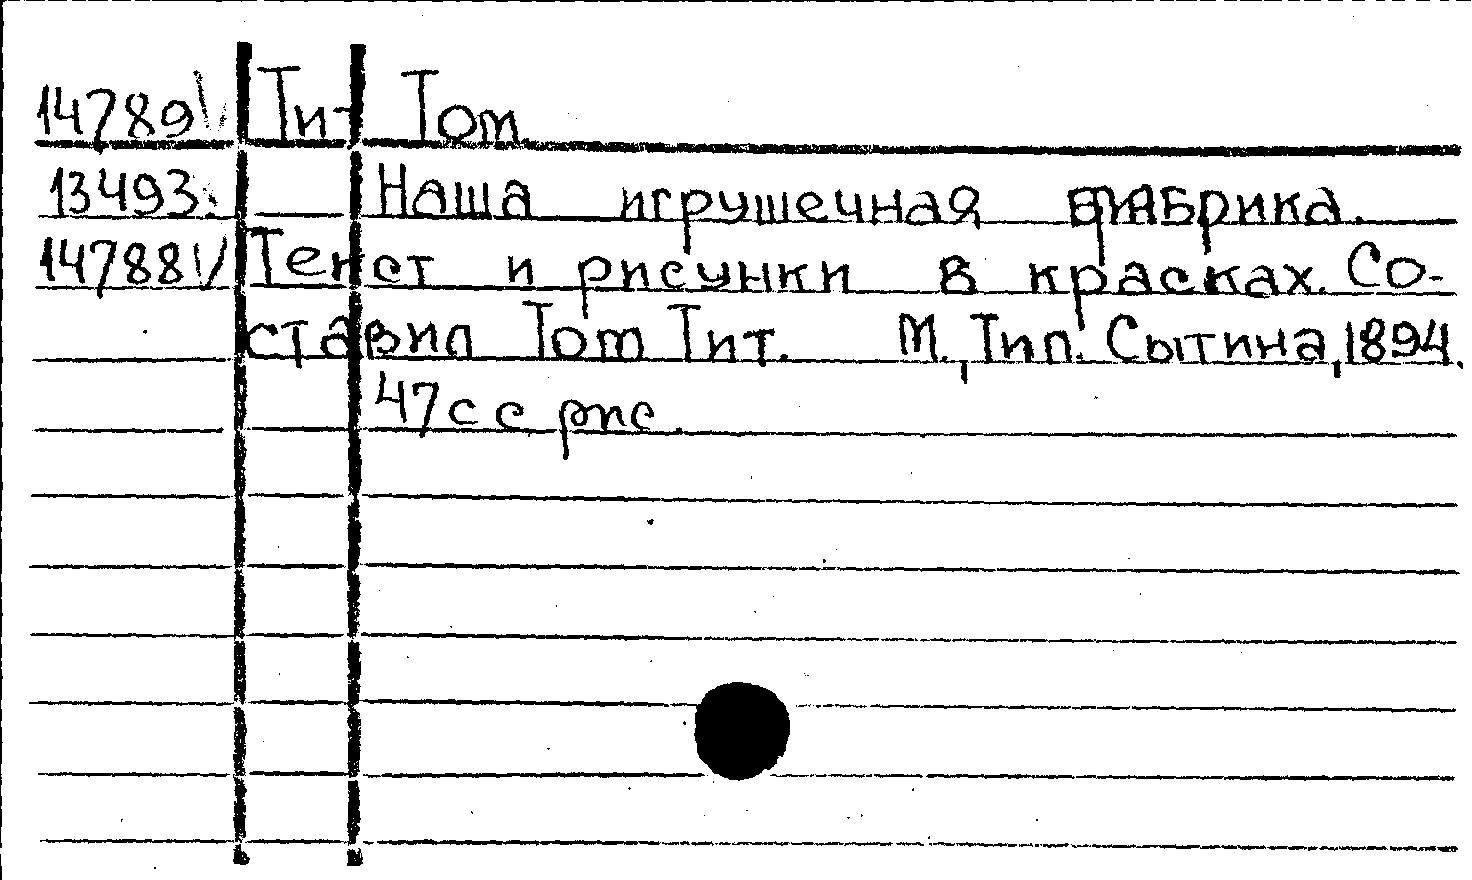 14789 Тит Том
13493. Наша игрушечная фабрика.
14788 Текст и рисунки в красках. Со-
ставил Том Тит. М., Тип. Сытина, 1894.
47 с с рис.